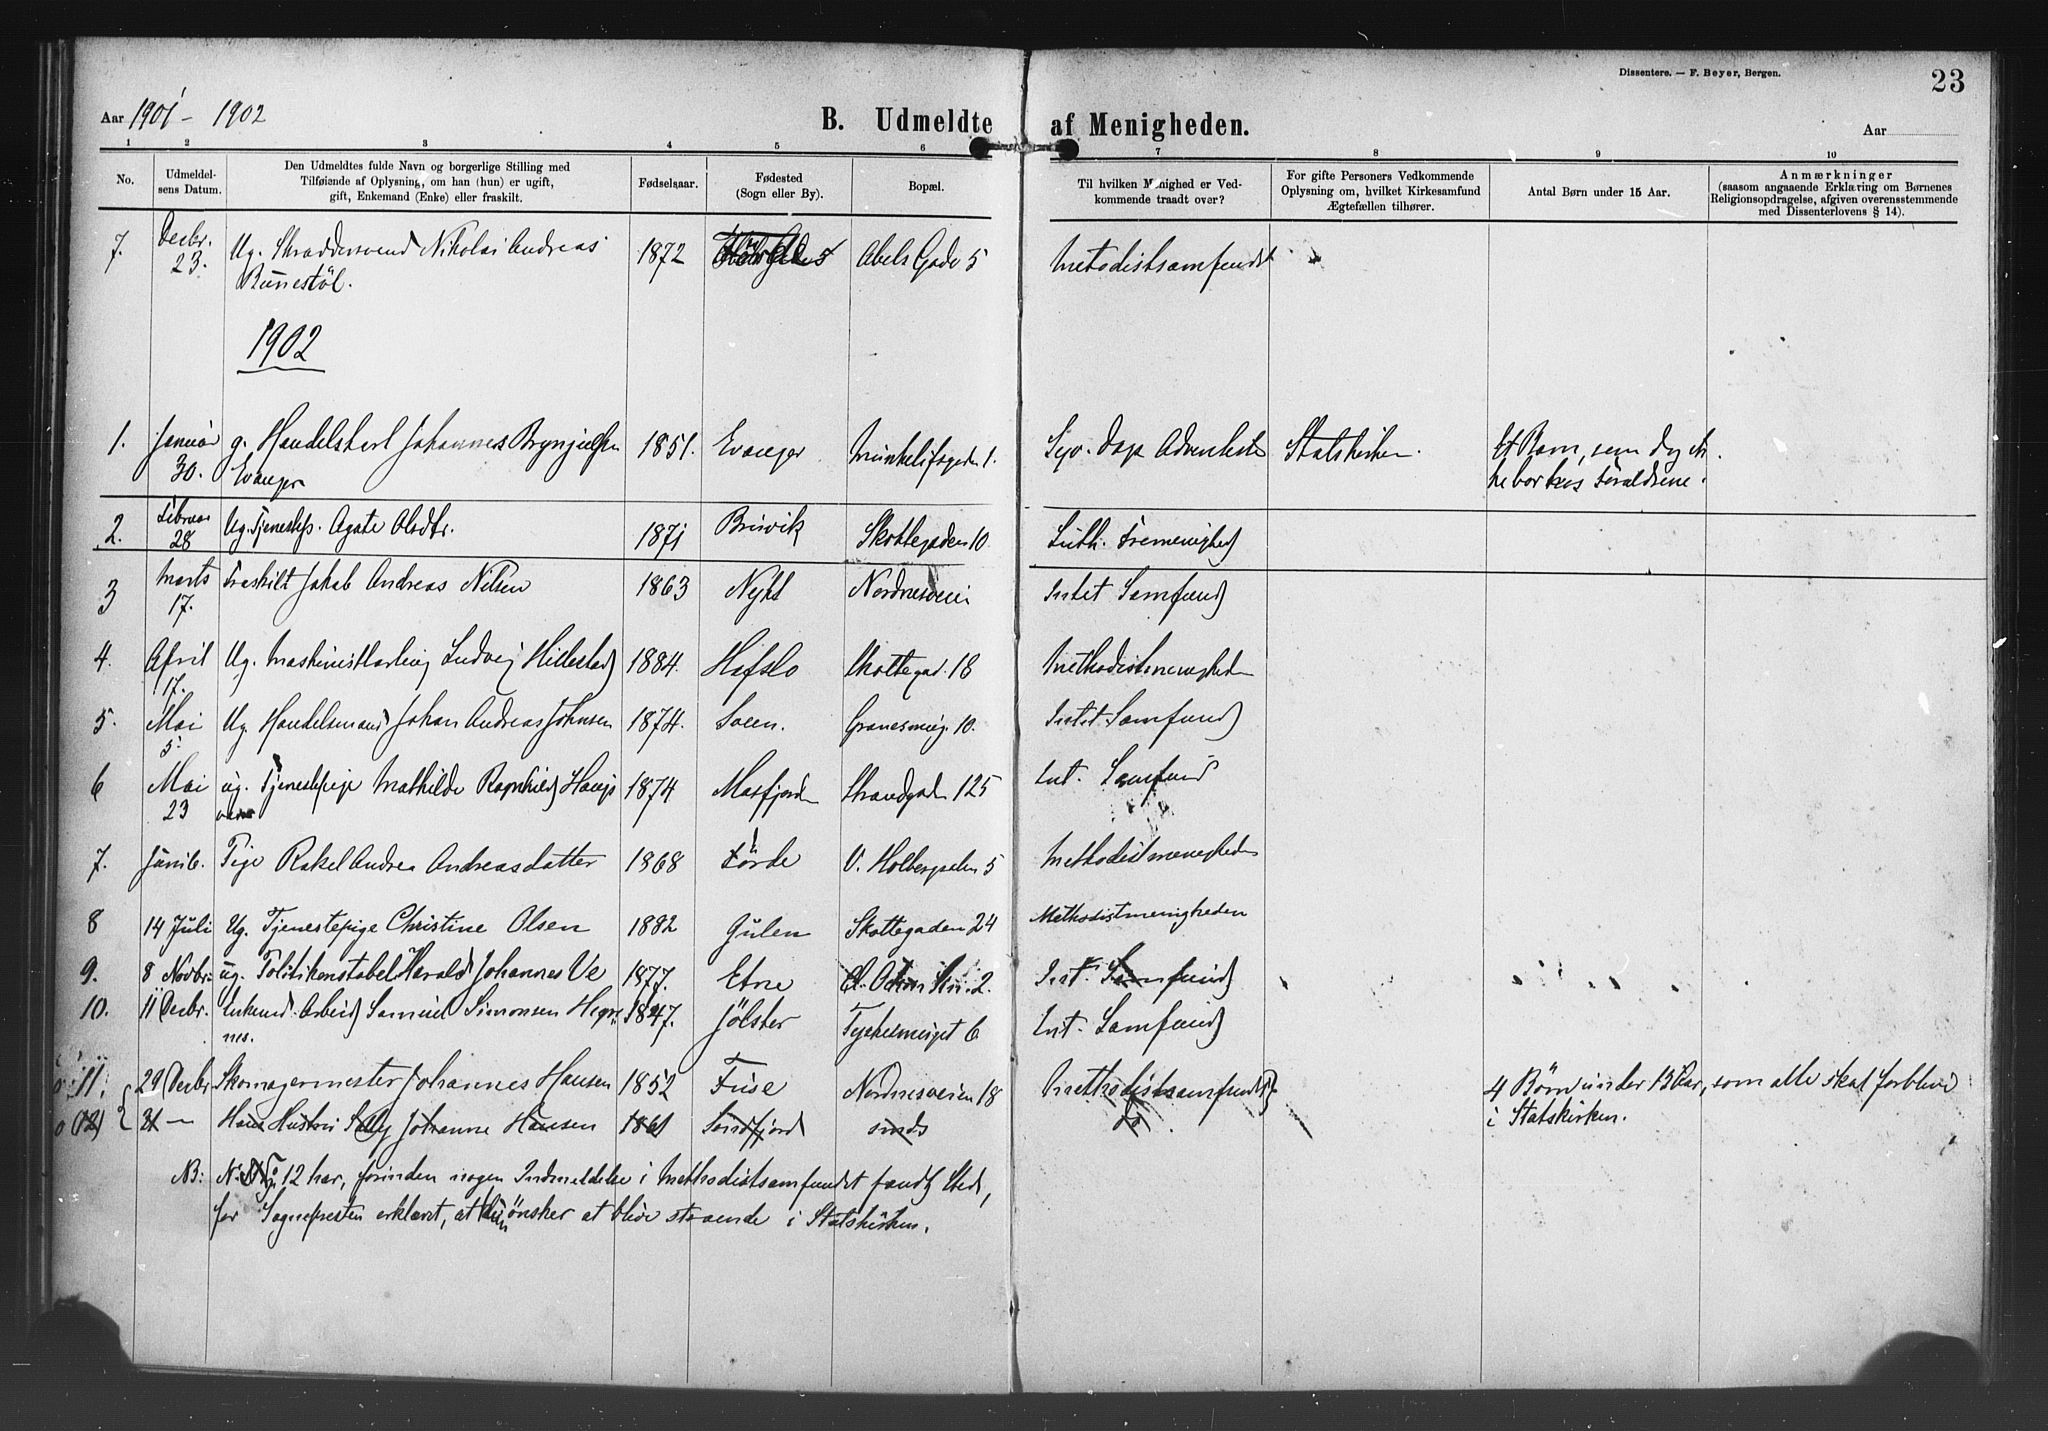 Dissentere. — F. Beyer, Bergen.
23
Aar 1901 - 1902
B. Udmeldte af Menigheden.
Aar
1 2 3 4 5 6 7 8 9 10
No.
Udmeldel-
sens Datum.
Den Udmeldtes fulde Navn og borgerlige Stilling med
Tilføiende af Oplysning, om han (hun) er ugift,
gift, Enkemand (Enke) eller fraskilt.
Fødselsaar.
Fødested
(Sogn eller By).
Bopæl.
Til hvilken Menighed er Ved-
kommende traadt over?
For gifte Personers Vedkommende
Oplysning om, hvilket Kirkesamfund
Ægtefællen tilhører.
Antal Børn under 15 Aar.
Anmærkninger
(saasom angaaende Erklæring om Børnenes
Religionsopdragelse, afgiven overensstemmende
med Dissenterlovens § 14).
7. Decbr. 23. Ug. Skræddersvend Nikolai Andreas 1872 Abels Gade 5 Metodistsamfundet
Runestöl.
1902
1. Januar 30. g. Handelskarl Johannes Brynjulfsen 1851. Evanger Munkelifsgaden 1. Syv. Dags Adventister Statskirken. Et Barn, som dog ik
Evanger
ke bor hos Forældrene.
2. Februar 28 Ug. Tjenestep. Agate Olsdtr. 1871 Brevik Skottegaden 10 Luth. Fremenighed
3 Marts 17. Fraskilt Jakob Andreas Nilsen 1863 Nykl Nordnesveien Intet Samfund
4. April 17. Ug. Maskinistlærling Ludvig Hillestad 1884. Hafslo Skottegad. 18 Methodistmenigheden
5. Mai 5. Ug. Handelsmand Johan Andreas Johnsen 1874. Soen. Granesmug. 10. Intet Samfund
6 Mai 23 ug. Tjenestepige Mathilde Ragnhild Haugs 1874 Masfjorden Strandgaden 125 Int. Samfund
7. Juni 6. Pige Rakel Andrea Andreasdatter 1868 Förde V. Holbergsalm 5 Methodistmenigheden
8 14 Juli Ug. Tjenestepige Christine Olsen 1882 Gulen Skottegaden 24 Methodistmenigheden
9. 8 Novbr. ug. Politikonstabel Harald Johannes Ve 1877. Etne 2. Int. Samfund
10. 11 Decbr. Enkemd. Arbeid. Samuel Simonsen Hegre- 1847. Jölster 6 Int. Samfund
nes.
11. 29 Decbr Skomagermester Johannes Hansen 1852 Fuse Nordnesveien 18 Methodistsamfundet 4 Børn under 15 Aar, som alle skal forblive
i Statskirken.
(12) 31 — Hans Hustru Johanne Hansen 1861 Söndfjord smds do
NB: No 12 har, forinden nogen Indmeldelse i Methodistsamfundet fandt Sted,
for Sognepresten erklæret, at hun ønsker at blive staaende i Statskirken.